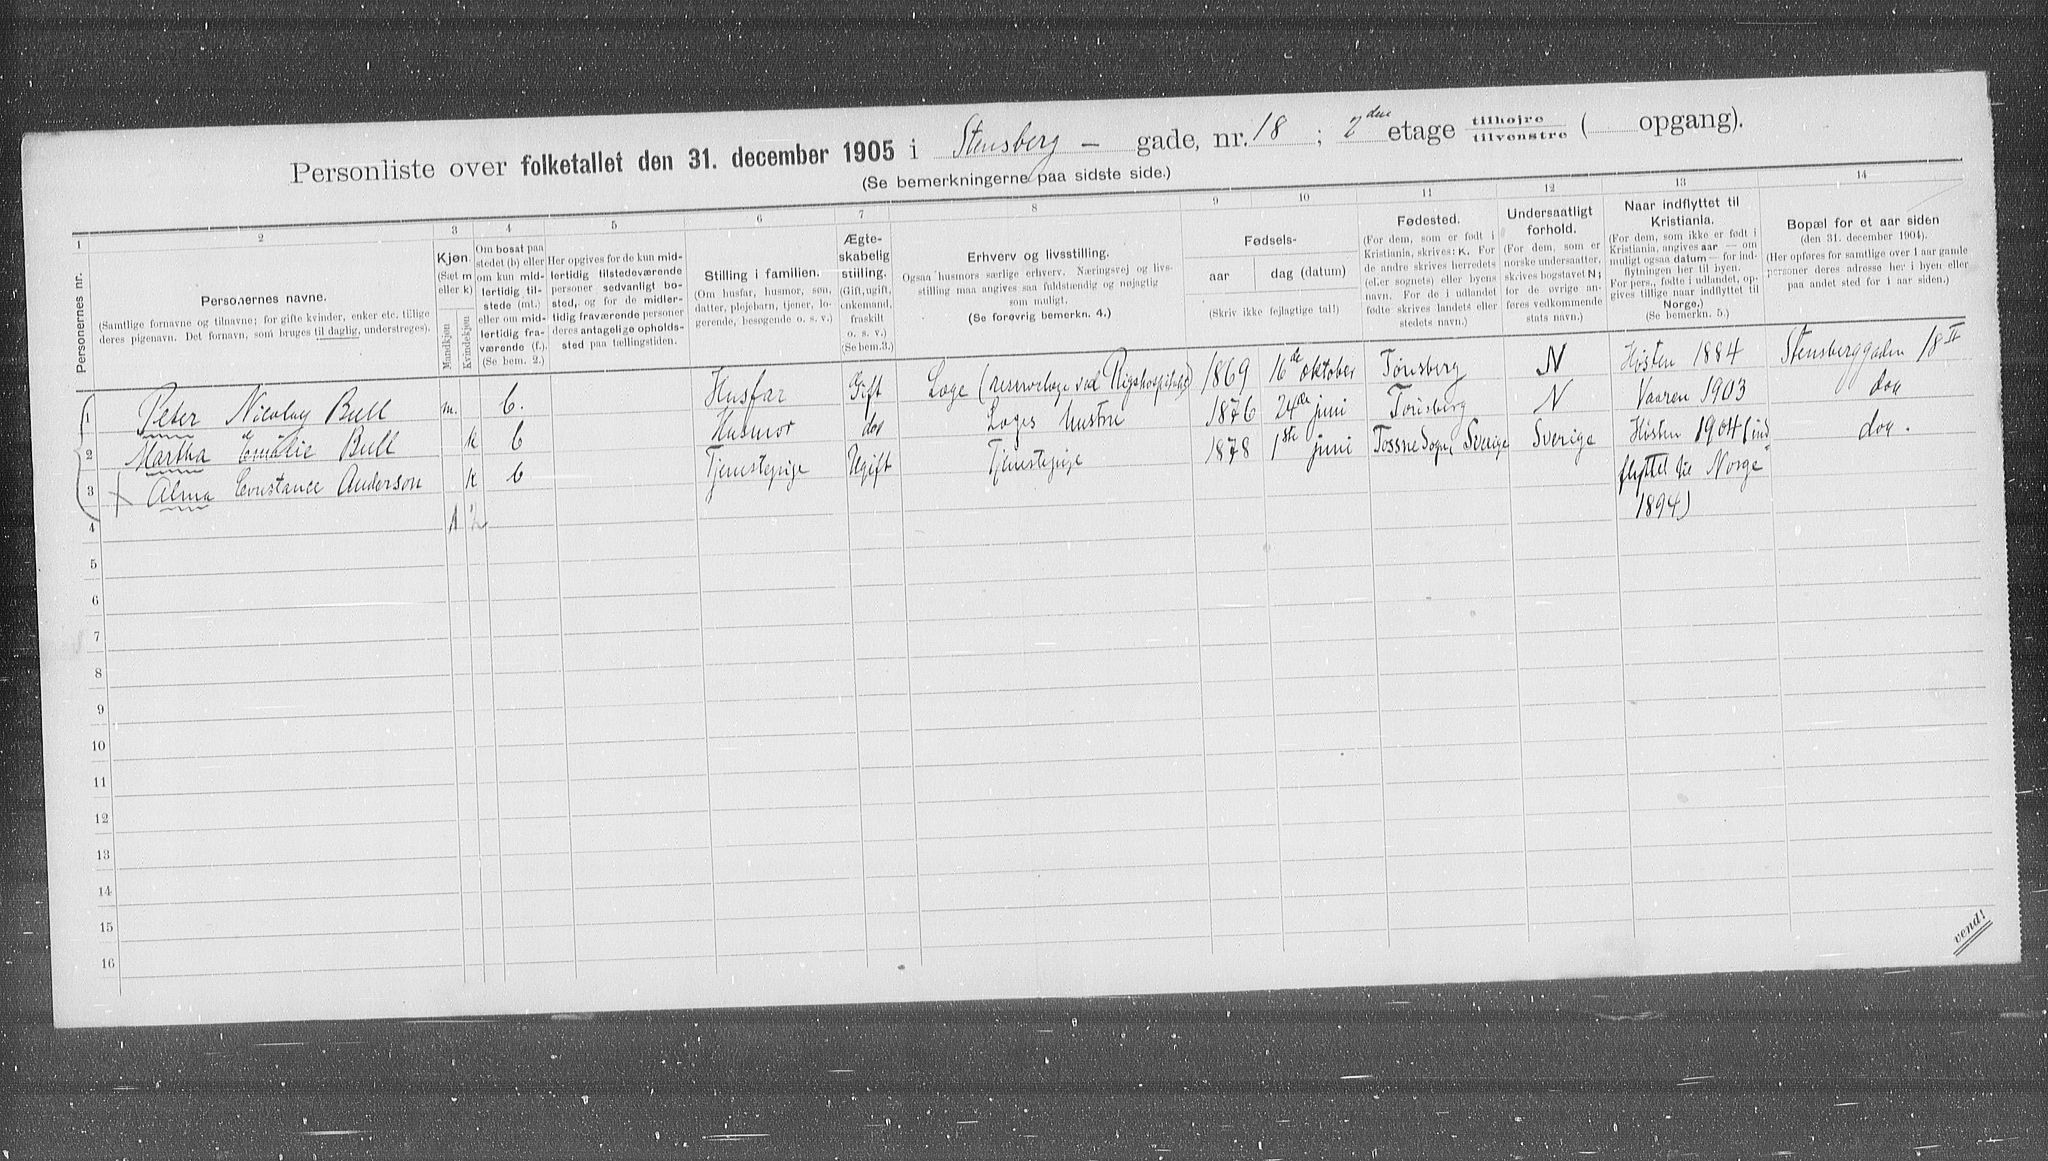 Personliste over folketallet den 31. december 1905 i Stensberg – gade, nr. 18 ; 2den etage tilhøjre / tilvenstre ( opgang).
(Se bemerkningerne paa sidste side.)
1 2 3 4 5 6 7 8 9 10 11 12 13 14
Personernes nr.
Personernes navne.
(Samtlige fornavne og tilnavne; for gifte kvinder, enker etc. tillige
deres pigenavn. Det fornavn, som bruges til daglig, understreges).
Kjøn.
(Sæt m
eller k)
Mandkjøn
Kvindekjøn
Om bosat paa
stedet (b) eller
om kun mid-
lertidig til-
stede (mt.)
eller om mid-
lertidig fra-
værende (f.).
(Se bem. 2.)
Her opgives for de kun mid-
lertidig tilstedeværende
personer sedvanlig bo-
sted, og for de midler-
tidig fraværende personer
deres antagelige opholds-
sted paa tællingstiden.
Stilling i familien.
(Om husfar, husmor, søn,
datter, plejebarn, tjener, lo-
gerende, besøgende o. s. v.)
Ægte-
skabelig
stilling.
(Gift, ugift,
enkemand,
fraskilt
o. s. v.)
(Se bem.3.)
Erhverv og livsstilling.
Ogsaa husmors særlige erhverv. Næringsvej og livs-
stilling maa angives saa fuldstændig og nøjagtig
som muligt.
(Se forøvrig bemerkn. 4.)
Fødsels-
aar dag (datum)
(Skriv ikke fejlagtige tal!)
Fødested.
(For dem, som er født i
Kristiania, skrives: K. For
de andre skrives herredets
(el.er sognets) eller byens
navn. For de i udlandet
fødte skrives landets eller
stedets navn.)
Undersaatligt
forhold.
(For dem, som er
norske undersaatter,
skrives bogstavet N;
for de øvrige an-
føres vedkommende
stats navn.)
Naar indflyttet til
Kristiania.
(For dem, som ikke er født i
Kristiania, angives aar — om
muligt ogsaa datum — for ind-
flytningen her til byen.
For pers., fødte i udlandet, op-
gives tillige naar indflyttet til
Norge.)
(Se bemerkn. 5.)
Bopæl for et aar siden
(den 31. december 1904).
(Her opføres for samtlige over 1 aar gamle
personer deres adresse her i byen eller
paa andet sted for 1 aar siden.)
1 Peter Nicolay Bull m. b. Husfar Gift Læge (reservelæge ved Rigshospitalet) 1869 16de oktober Tønsberg N Høsten 1884 Stensberggaden 18 II
2 Martha Emilie Bull k b Husmor do Læges hustru 1876 24de juni Tønsberg N Vaaren 1903 do
3 Alma Constance Anderson k b Tjenestepige Ugift Tjenestepige 1878 1ste juni Tossne Sogn, Sverige Sverige Høsten 1904 (ind
flyttet til Norge
4 1 2 1894)
do.
5
6
7
8
9
10
11
12
13
14
15
16
vend!